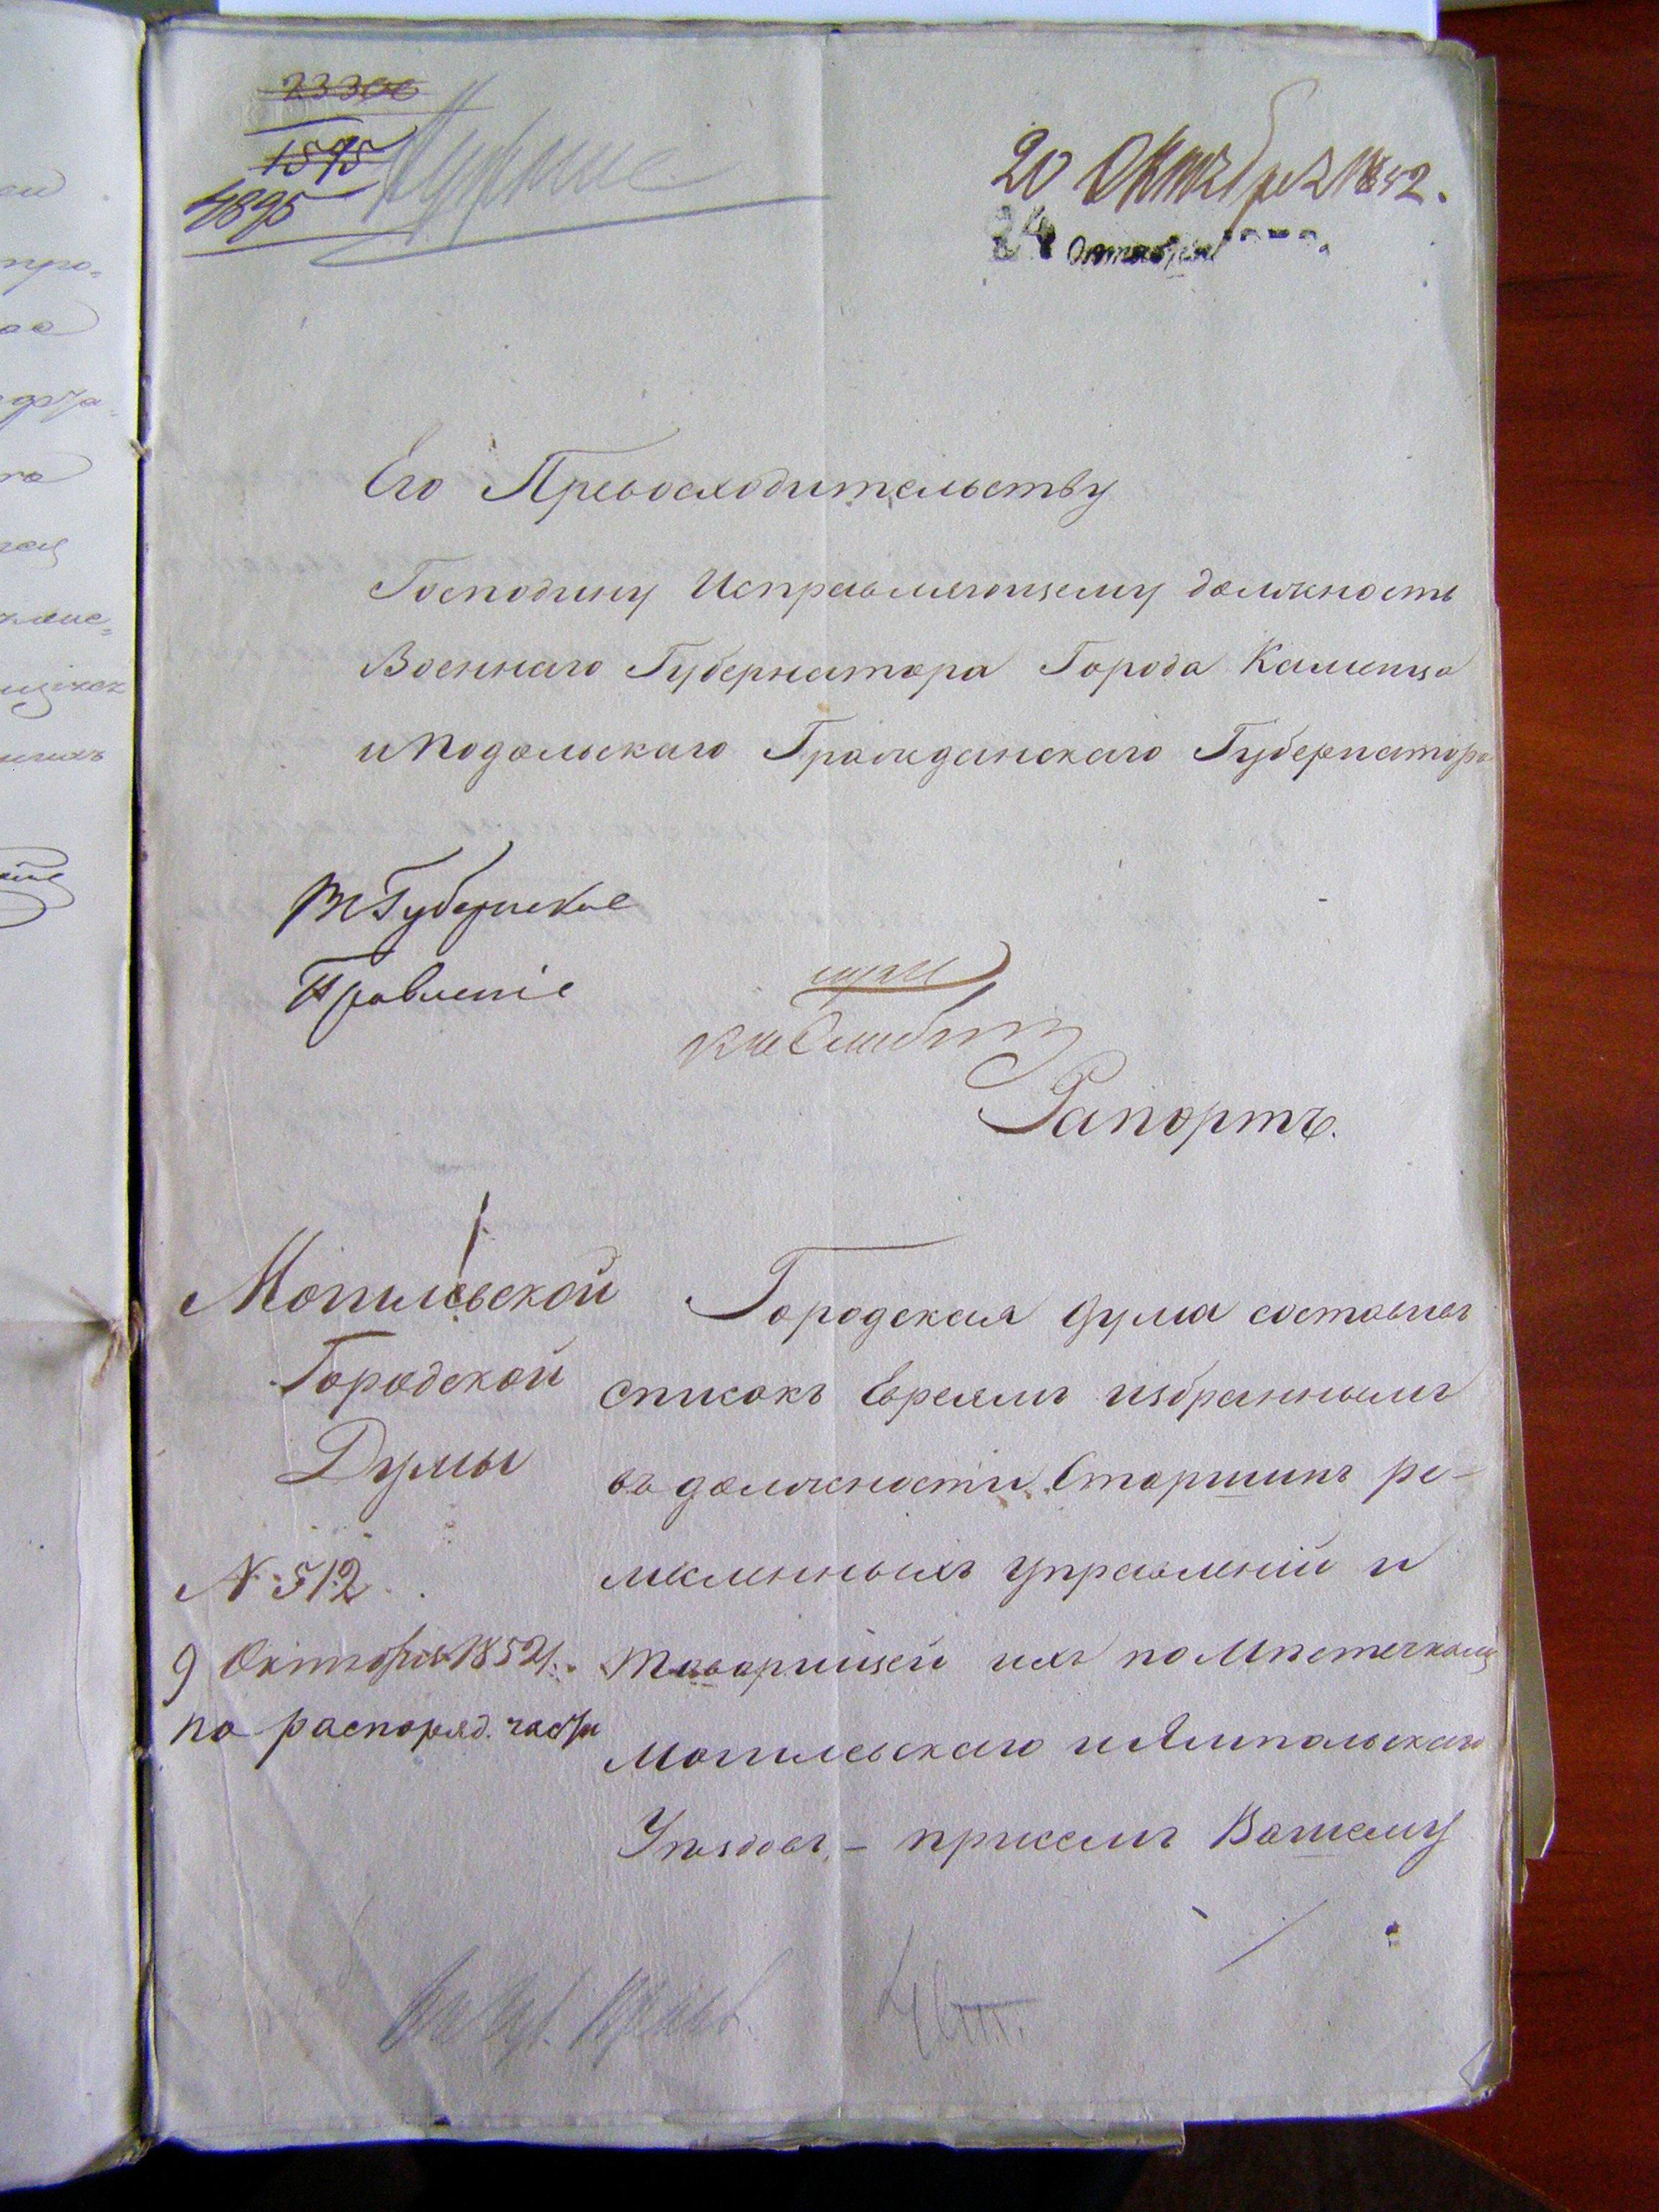 23306
1595
4895
20 Октября 1852.
24 Октября
Его Превосходительству
Господину Исправляющему должность
Военнаго Губернатора Города Каменца
и Подольскаго Гражданскаго Губернатора
В Губернское
Правленіе
Рапортъ.
Могилевской
Городской
Думы
N. 512
9 Октября 1852 г.
по распоряд. части
Городская дума составивъ
списокъ Евреямъ избраннымъ
въ должности Старшинъ ре-
месленныхъ управленій и
товарищей ихъ по Мѣстечкамъ
Могилевскаго и Ямпольскаго
Уѣздовъ, - при семъ Вашему